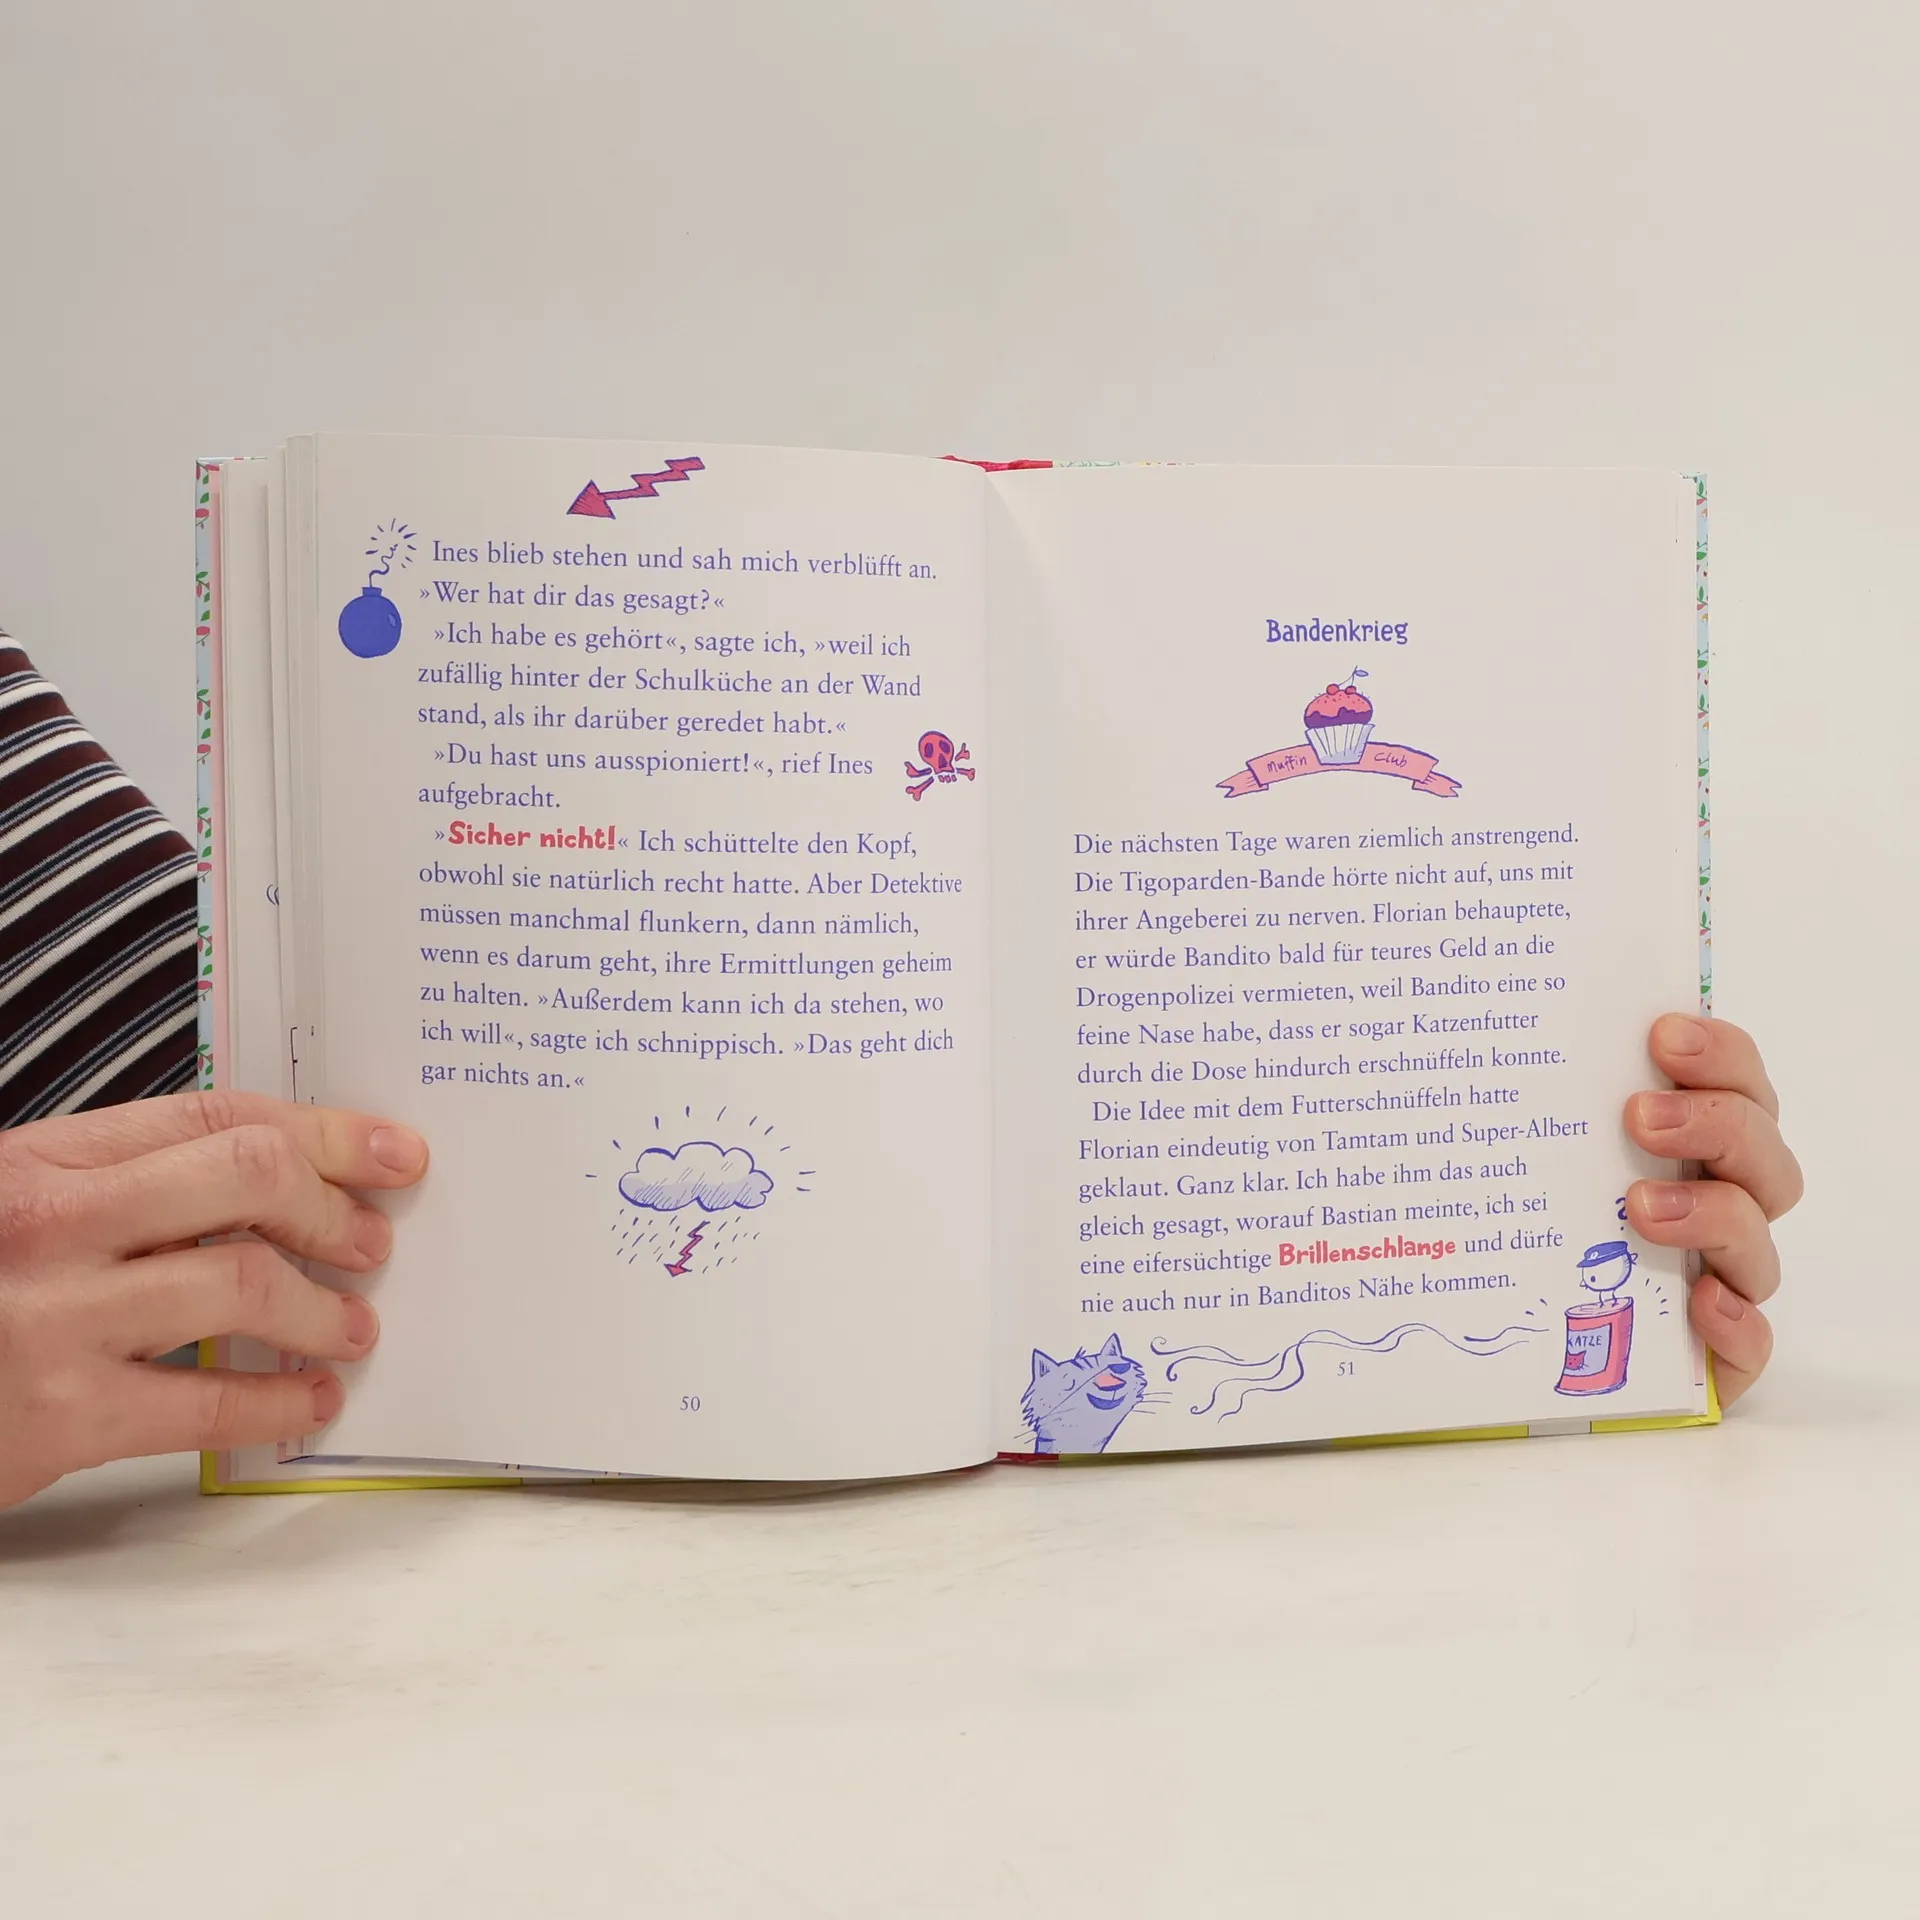 Ines blieb stehen und sah mich verblüfft an.
»Wer hat dir das gesagt?«
»Ich habe es gehört«, sagte ich, »weil ich
zufällig hinter der Schulküche an der Wand
stand, als ihr darüber geredet habt.«
»Du hast uns ausspioniert!«, rief Ines
aufgebracht.
»Sicher nicht!« Ich schüttelte den Kopf,
obwohl sie natürlich recht hatte. Aber Detektive
müssen manchmal flunkern, dann nämlich,
wenn es darum geht, ihre Ermittlungen geheim
zu halten. »Außerdem kann ich da stehen, wo
ich will«, sagte ich schnippisch. »Das geht dich
gar nichts an.«
50
Bandenkrieg
Muffin Club
Die nächsten Tage waren ziemlich anstrengend.
Die Tigoparden-Bande hörte nicht auf, uns mit
ihrer Angeberei zu nerven. Florian behauptete,
er würde Bandito bald für teures Geld an die
Drogenpolizei vermieten, weil Bandito eine so
feine Nase habe, dass er sogar Katzenfutter
durch die Dose hindurch erschnüffeln konnte.
Die Idee mit dem Futterschnüffeln hatte
Florian eindeutig von Tamtam und Super-Albert
geklaut. Ganz klar. Ich habe ihm das auch
gleich gesagt, worauf Bastian meinte, ich sei
eine eifersüchtige Brillenschlange und dürfe
nie auch nur in Banditos Nähe kommen.
KATZE
51